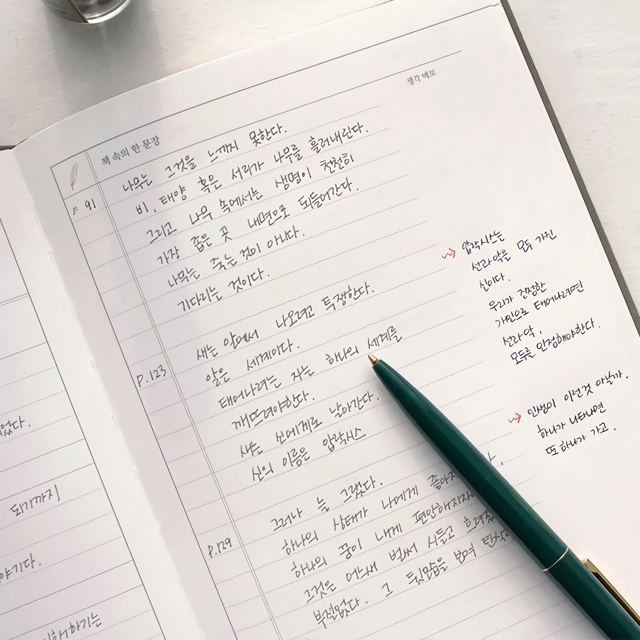 책 속의 한 문장
생각 메모
P. 91
나무는 그것을 느끼지 못한다.
비, 태양 혹은 서리가 나무를 흘러내린다.
그리고 나무 속에서는 생명이 천천히
가장 좁은 곳 내면으로 되돌아간다.
나무는 죽는 것이 아니다.
기다리는 것이다.
P.123
새는 알에서 나오려고 투쟁한다.
알은 세계이다.
태어나려는 자는 하나의 세계를
깨뜨려야한다.
새는 신에게로 날아간다.
신의 이름은 압락사스
압락사스는
선과 악을 모두 가진
신이다.
우리가 진정한
가면으로 태어나려면
선과 악,
모두를 인정해야한다.
P.129
그러나 늘 그랬다.
하나의 상태가 나에게 좋아지
하나의 꿈이 내게 편안해지자
그것은 어느새 벌써 시들고 흐려
부질없다. 그 뒷모습을 보며 탄
인생이 이런것 아닐까.
하나가 나타나면
또 하나가 가고.
었다.
되기까지
야기다.
하기는